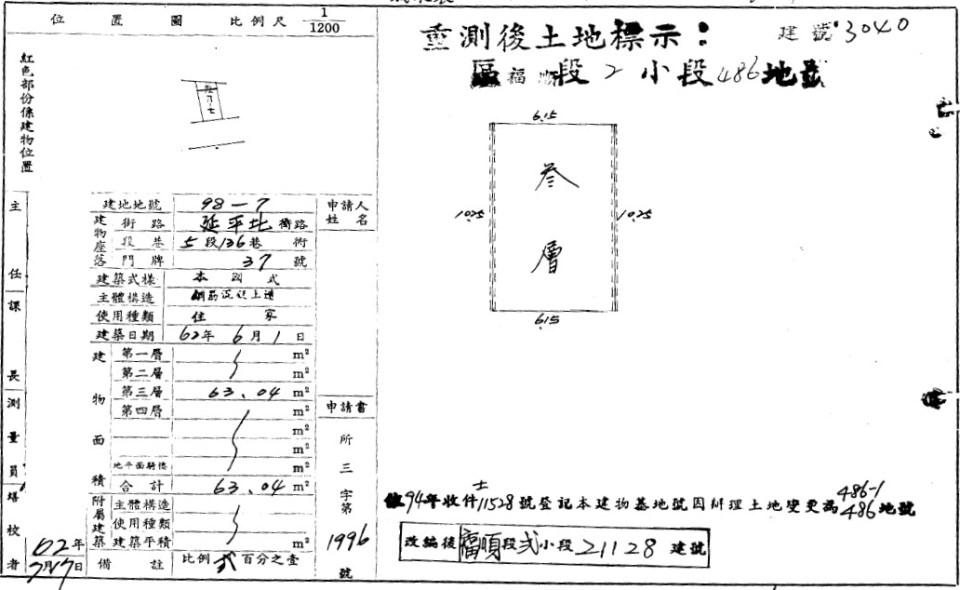 位置圖 比例尺 1/1200
紅色部份係建物位置
重測後土地標示：
建號3040
區福順段2小段486地號
6.15
10.25
叁層
10.25
6.15
建地地號 98-7
建物座落
街路 延平北街路
段巷 5段136巷 衖
門牌 37號
建築式樣 本國式
主體構造
使用種類 住家
建築日期 62年6月1日
建物面積
第一層 m²
第二層 m²
第三層 63.04 m²
第四層 m²
m²
m²
地平面騎樓 m²
合計 63.04 m²
附屬建築
主體構造
使用種類
建築平積 m²
備註 比例 百分之壹
申請人姓名
申請書
所三字第1996號
主任課長
測量員
校者
62年7月17日
94年收件士11528號登記本建物基地號因辦理土地變更為486-1 486地號
改編後福順段弍小段21128建號